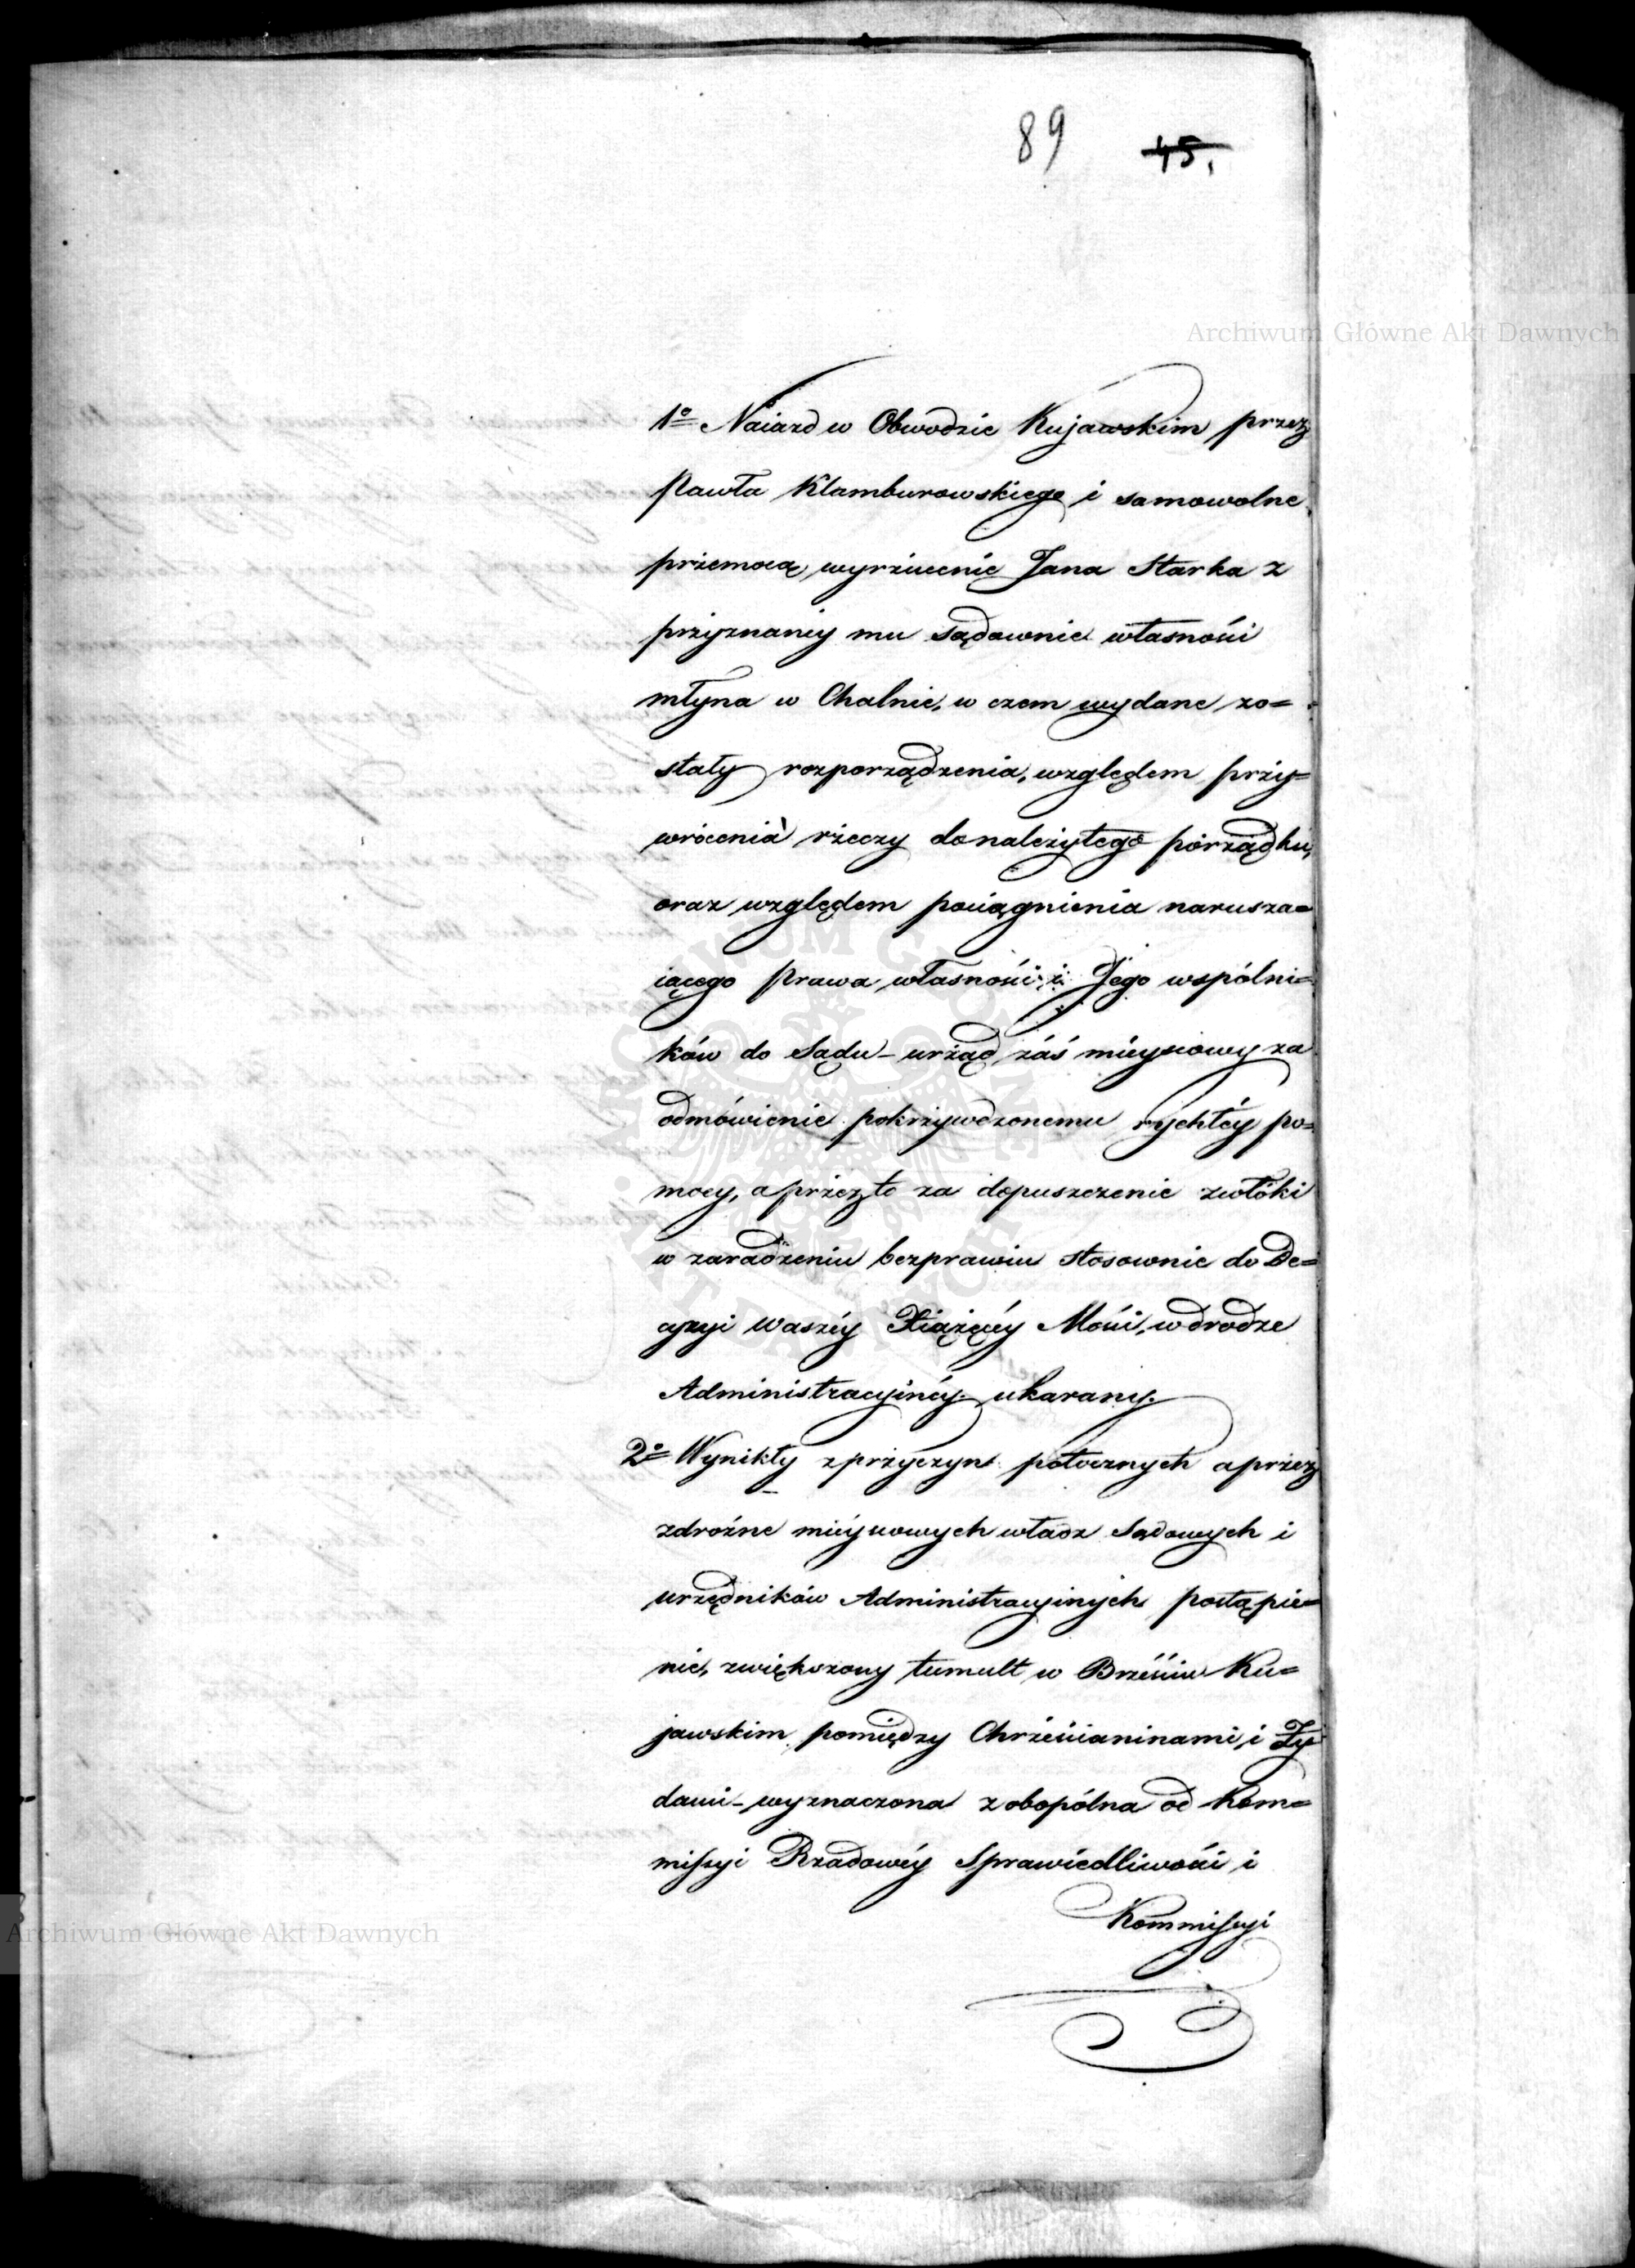 89 45.
Archiwum Główne Akt Dawnych
1º Naiazd w Obwodzie Kujawskim przez
Pawła Klamburowskiego i samowolne
przemocą wyrzucenie Jana Starka z
przyznaney mu sądownie własności
młyna w Chalnie, w czem wydane zo=
stały rozporządzenia, względem przy=
wrócenia rzeczy do należytego porządku,
oraz względem pociągnienia narusza=
iącego prawa własności i Jego wspólni=
ków do Sądu – urząd zaś mieyscowy za
odmówienie pokrzywdzonemu rychłéy po=
mocy, a przezto za dopuszczenie zwłóki
w zaradzeniu bezprawiu stosownie do De=
cyzyi Waszéy Xiążęcéy Mości, w drodze
Administracyinéy ukarany.
2º Wynikły z przyczyn potocznych a przez
zdrożne mieyscowych władz Sądowych i
urzędników Administracyinych postąpie=
nie, zwiększony tumult w Brześciu Ku=
jawskim pomiędzy Chrześcianinami i Ży
dami – wyznaczona z obopólna od Kom=
missyi Rządowéy Sprawiedliwości i
Kommissyi
Archiwum Główne Akt Dawnych